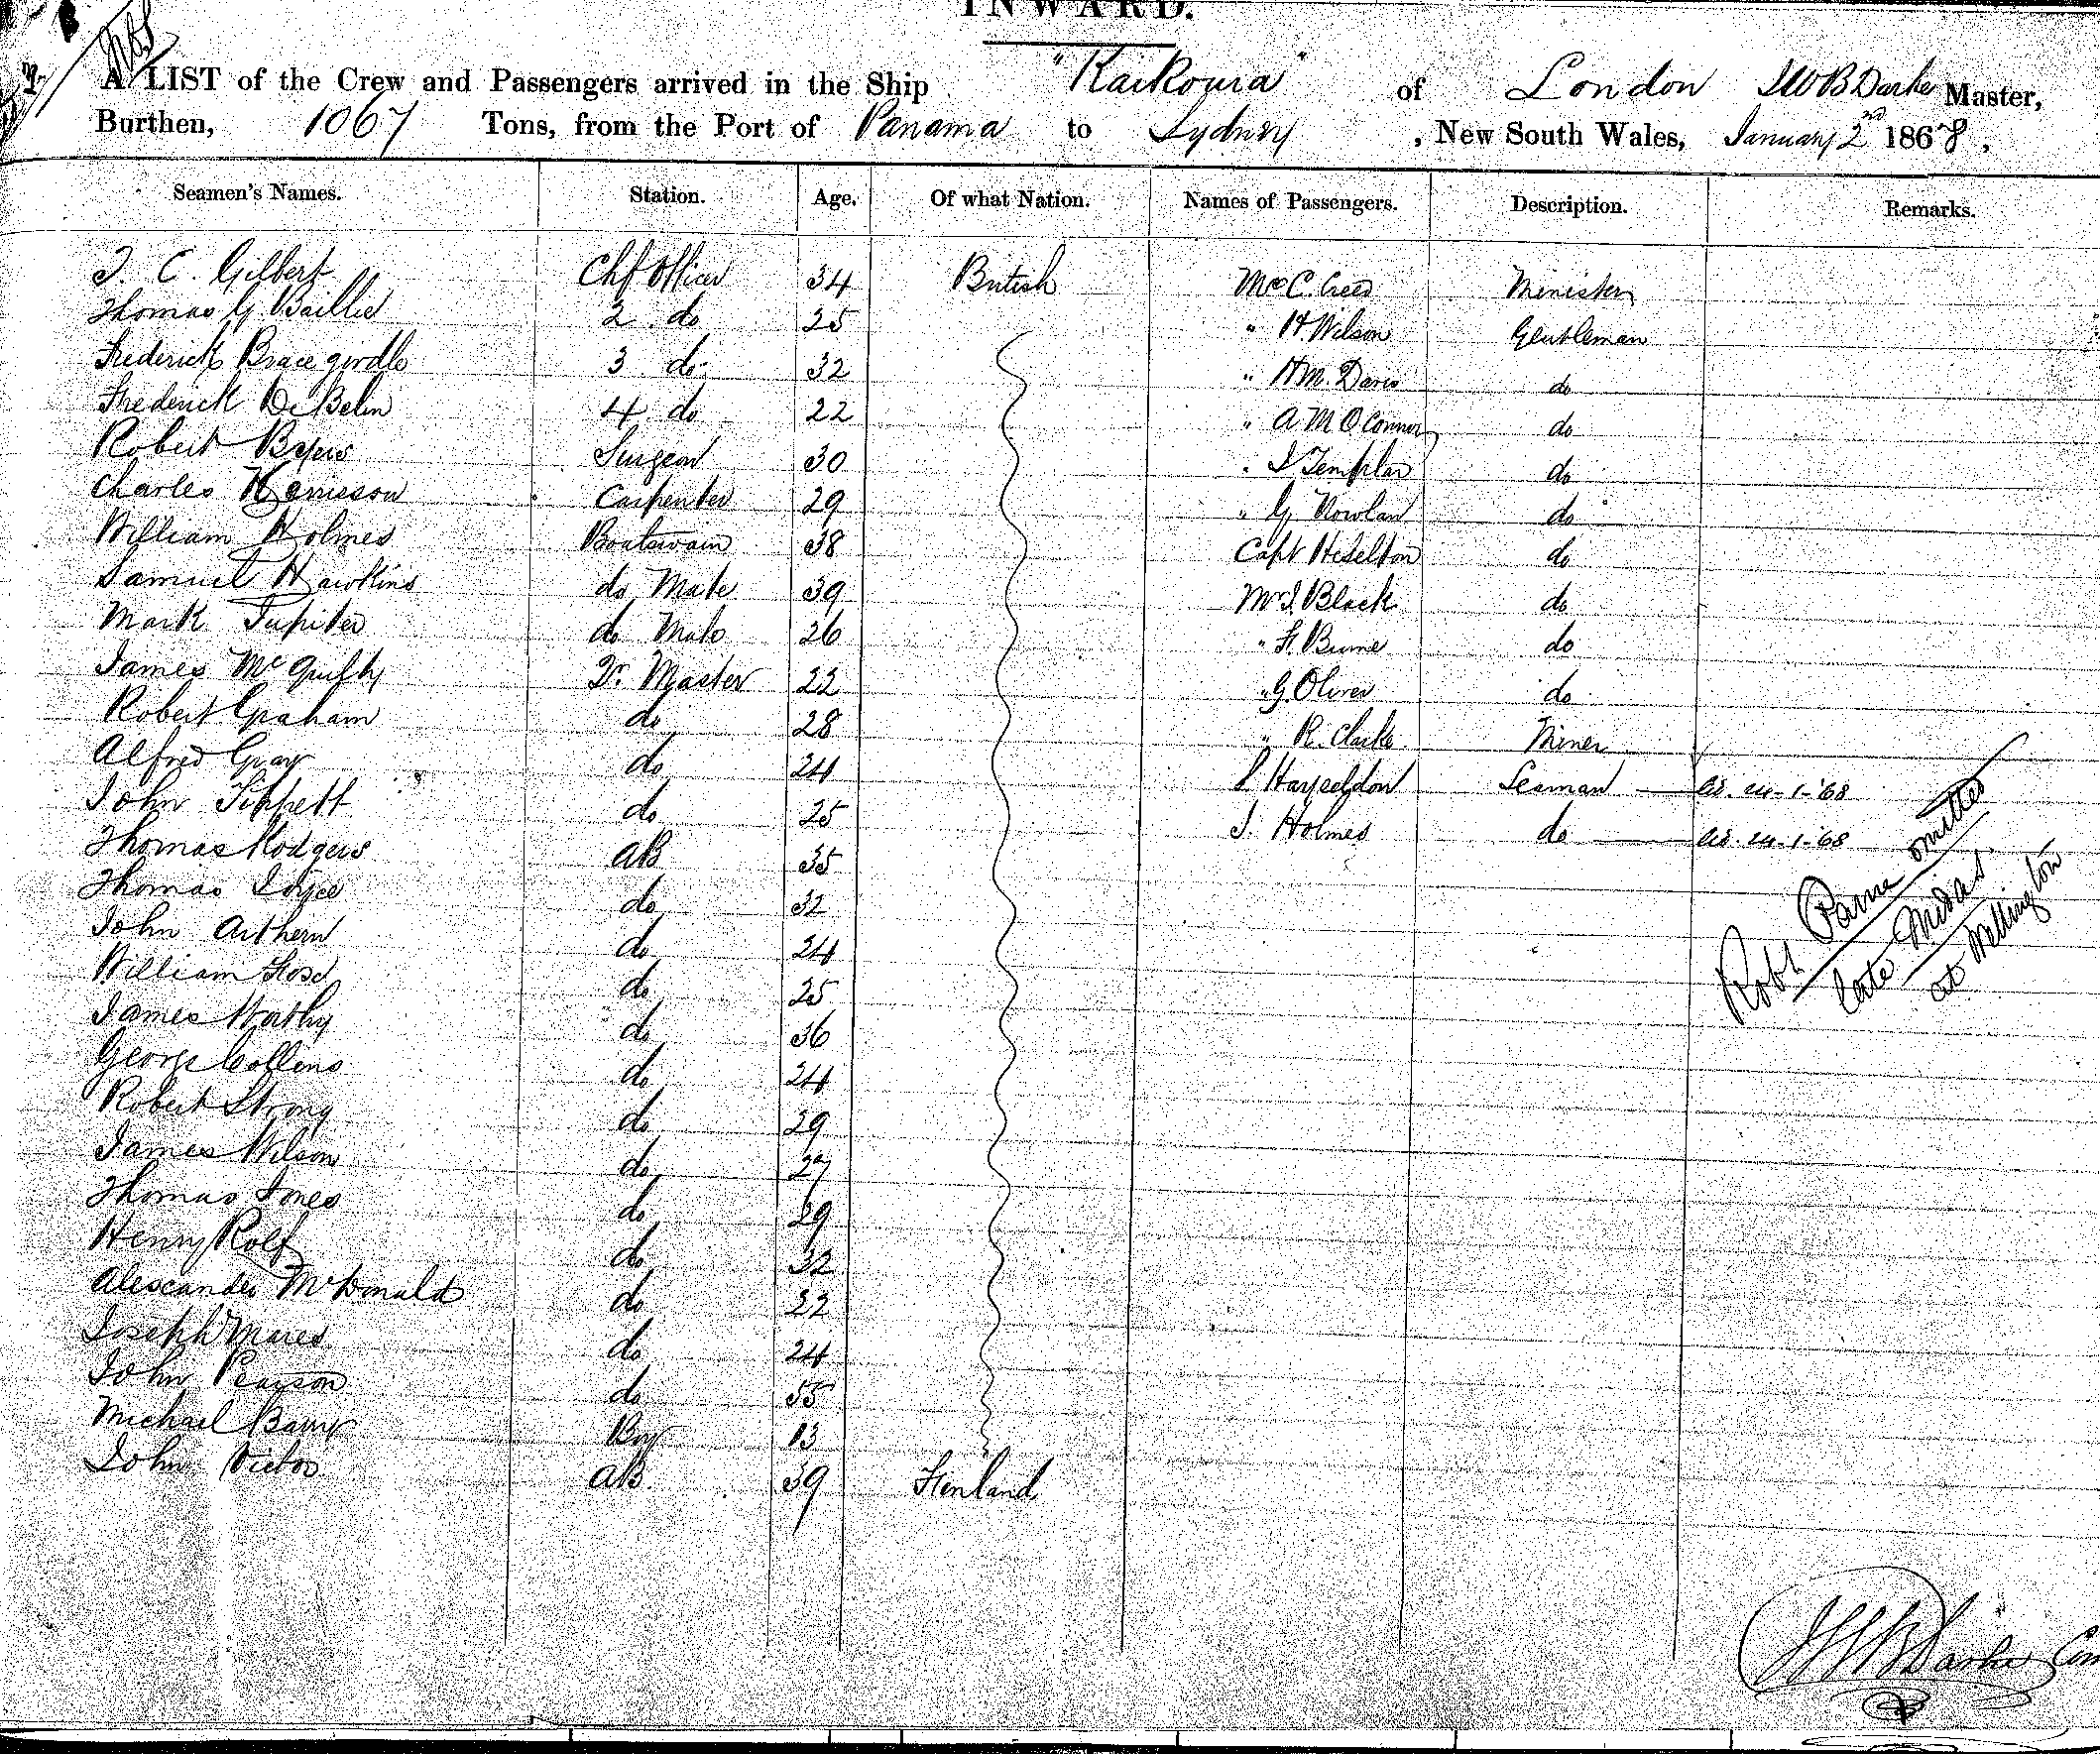 INWARD.
A LIST of the Crew and Passengers arrived in the Ship "Kaikoura" of London JWB Darke Master,
Burthen, 1067 Tons, from the Port of Panama to Sydney, New South Wales, January 2nd 1868,
Seamen's Names. Station. Age. Of what Nation. Names of Passengers. Description. Remarks.
J. C. Gilbert Chf Officer 34 British Mr C. Creed Minister
Thomas G. Baillie 2 do 25 " H Wilson Gentleman
Frederick Bracegirdle 3 do 32 " H M. Davis do
Frederick De Belin 4 do 22 " A M O Connor do
Robert Byers Surgeon 30 " J Templar do
Charles Harrisson Carpenter 29 " G Nowlan do
William Holmes Boatswain 38 Capt Heselton do
Samuel Hawkins do Mate 39 Mr J. Black do
Mark Jupiter do Mate 26 " F. Burne do
James McGuilty Qr. Master 22 " G. Oliver do
Robert Graham do 28 " R. Clarke Miner
Alfred Gray do 24 Hazseldon Seaman 24-1-'68
John Tippett do 25 J. Holmes do 24-1-'68
Thomas Hodgers AB 35
Thomas Joyce do 32
John Arthern do 24
William do 25
James Worthy do 36
George Collins do 24
Robert Strong do 29
James Wilson do 27
Thomas Jones do 29
Henry Rolf do 32
Alexander McDonald do 22
Joseph Mares do 24
John Pearson do 55
Michael Barry Boy 13
John Victor AB. 39 Finland
Robt Paine omitted
late Midas.
at Wellington
JWB Darke Com